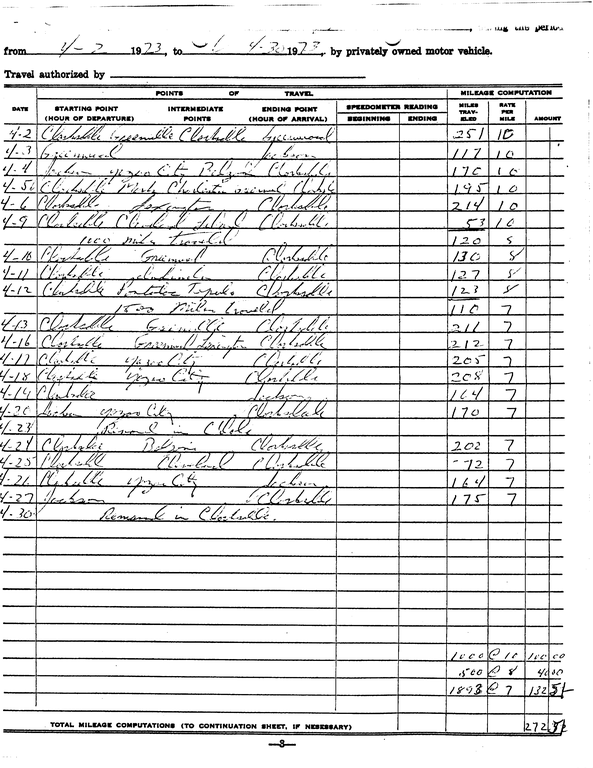 the period
from 4-2 1973, to 4-30 1973, by privately owned motor vehicle.
Travel authorized by
POINTS OF TRAVEL MILEAGE COMPUTATION
DATE STARTING POINT (HOUR OF DEPARTURE) INTERMEDIATE POINTS ENDING POINT (HOUR OF ARRIVAL) SPEEDOMETER READING BEGINNING ENDING MILES TRAVELED RATE PER MILE AMOUNT
4-2 Clarksdale Greenville Clarksdale Greenwood 251 10
4-3 Greenwood Jackson 117 10
4-4 Jackson Yazoo City Belzoni Clarksdale 170 10
4-5 Clarksdale Marks Charleston Clarksdale 195 10
4-6 Clarksdale Lexington Clarksdale 214 10
4-9 Clarksdale Cleveland Leland Clarksdale 53 10
1000 miles traveled 120 8
4-10 Clarksdale Greenwood Clarksdale 130 8
4-11 Clarksdale Clarksdale 127 8
4-12 Clarksdale Pontotoc Tupelo Clarksdale 123 8
1500 Miles traveled 110 7
4-13 Clarksdale Greenville Clarksdale 211 7
4-16 Clarksdale Greenwood Lexington Clarksdale 212 7
4-17 Clarksdale Yazoo City Clarksdale 205 7
4-18 Clarksdale Yazoo City Clarksdale 208 7
4-19 Clarksdale Jackson 164 7
4-20 Jackson Yazoo City Clarksdale 170 7
4-23 Remained in
4-24 Clarksdale Belzoni Clarksdale 202 7
4-25 Clarksdale Cleveland Clarksdale 72 7
4-26 Clarksdale Yazoo City Jackson 164 7
4-27 Jackson Clarksdale 175 7
4-30 Remained in Clarksdale.
1000 @ 10 100.00
500 @ 8 40.00
1893 @ 7 132.51
TOTAL MILEAGE COMPUTATIONS (TO CONTINUATION SHEET, IF NECESSARY) 272
—3—